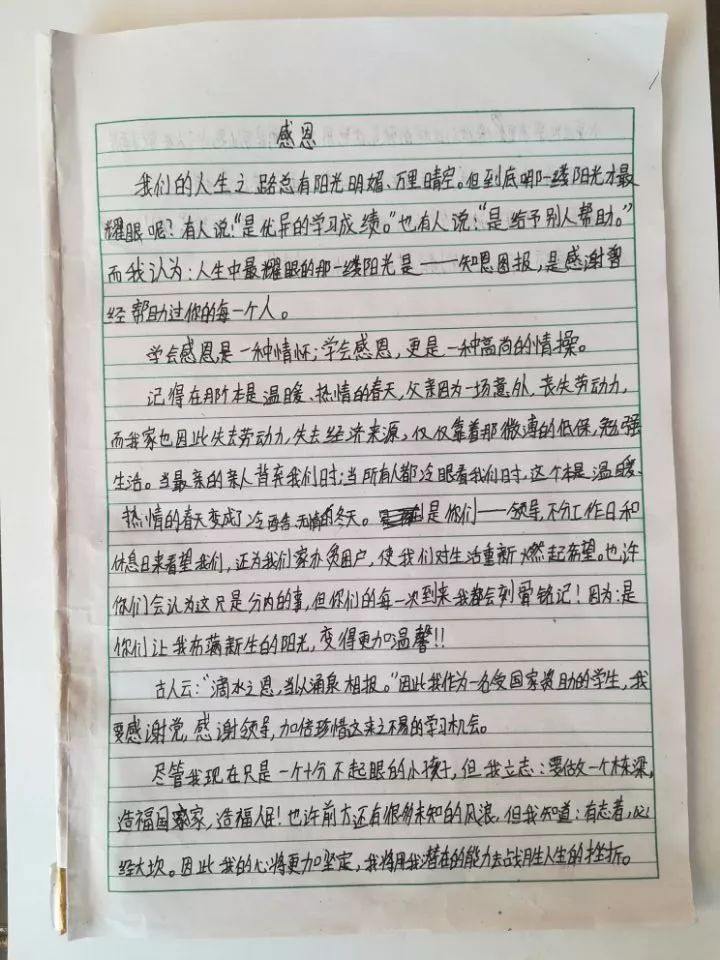 感恩
我们的人生之路总有阳光明媚、万里晴空。但到底哪一缕阳光才最
耀眼呢？有人说：“是优异的学习成绩。”也有人说：“是给予别人帮助。”
而我认为：人生中最耀眼的那一缕阳光是——知恩图报，是感谢曾
经帮助过你的每一个人。
学会感恩，是一种情怀；学会感恩，更是一种高尚的情操。
记得在那个本是温暖、热情的春天，父亲因为一场意外，丧失劳动力，
而我家也因此失去劳动力，失去经济来源，仅仅靠着那微薄的低保，勉强
生活。当最亲的亲人背弃我们时；当所有人都冷眼看我们时，这个本是温暖、
热情的春天变成了冷酷、无情的冬天。是你们——领导，不分工作日和
休息日来看望我们，还为我们家办贫困户，使我们对生活重新燃起希望。也许
你们会认为这只是分内的事，但你们的每一次到来我都会刻骨铭记！因为：是
你们让我布满新生的阳光，变得更加温馨！！
古人云：“滴水之恩，当以涌泉相报。”因此我作为一名受国家资助的学生，我
要感谢党，感谢领导，加倍珍惜这来之不易的学习机会。
尽管我现在只是一个十分不起眼的小孩子，但我立志：要做一个栋梁，
造福国家，造福人民！也许前方还有很多未知的风浪，但我知道：有志者，必
经大坎。因此我的心将更加坚定，我将用我潜在的能力去战胜人生的挫折。